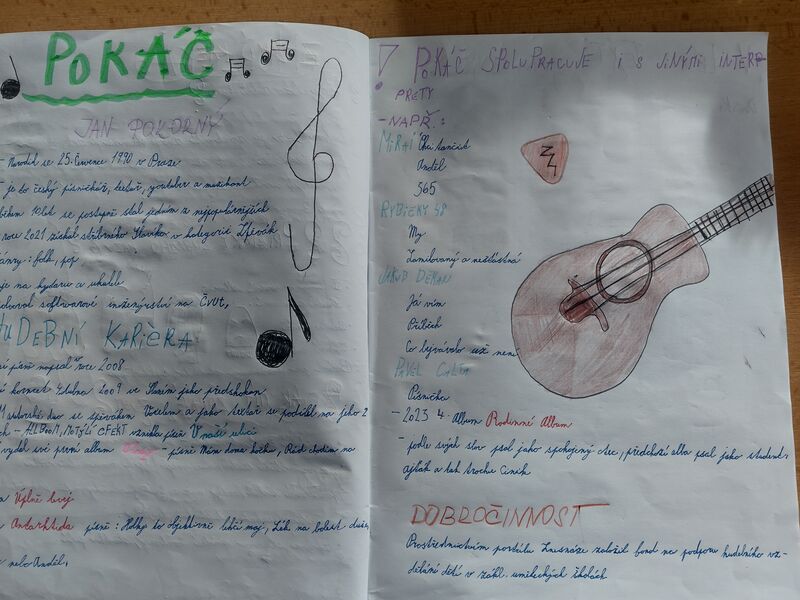 POKÁČ
JAN POKORNÝ
- Narodil se 25. července 1990 v Praze
- je to český písničkář, textař, youtuber a muzikant
během 10 let se postupně stal jedním z nejpopulárnějších
roce 2021 získal stříbrného Slavíka v kategorii Zpěvák
žánry: folk, pop
je na kytaru a ukulele
softwarové inženýrství na ČVUT,
UDEBNÍ KARIÉRA
písň napsal roce 2008
koncert 4. dubna 2009 ve jako předskokan
autorské duo se zpěvákem Voxelem a jako textař se podílel na jeho 2
ch - ALBUM, MOTÝLÍ EFEKT vznikla píseň V naší ulici
vydal své první album - písně Mám doma kočku, Rád chodím na
Úplně levej
Antarktida písně: Holky to objektivně lehčí maj, Lék na bolest duše,
nebo Anděl.
! POKÁČ SPOLUPRACUJE I S JINÝMI INTERP
PRETY
- NAPŘ:
MIRAI Chci tančit
Anděl
365
RYBIČKY 48
My
Zamilovaný a nešťastná
JAKUB DĚKAN
Já vím
Příběh
Co bývávalo už není
PAVEL CALTA
Písnička
- 2023 4. Album Rodinné Album
- podle svých slov psal jako spokojený otec, předchozí alba psal jako student-
ajťák a tak trochu Cinik
DOBROČINNOST
Prostřednictvím portálu založil fond na podporu hudebního vz-
dělání dětí v zákl. uměleckých školách